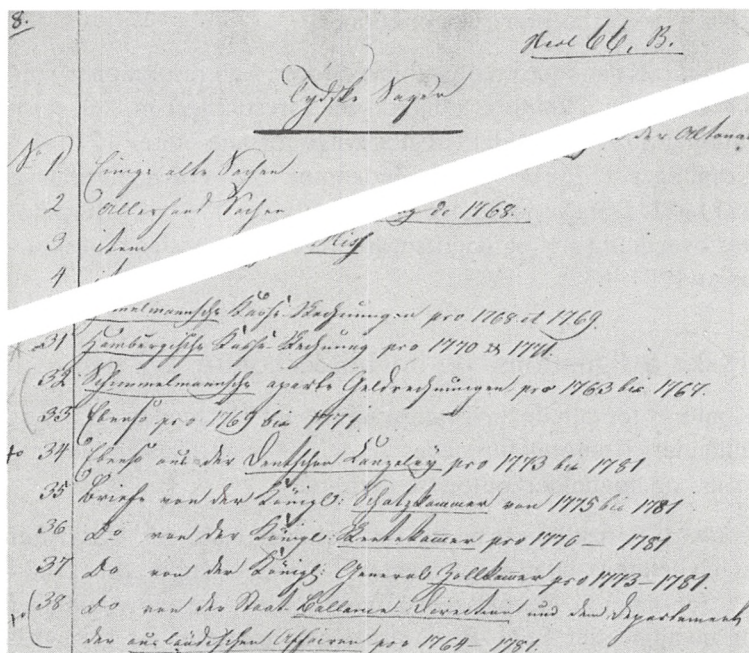 8.
66, B.
Tydske Sager
der Altona
No 1 Einige alte Sachen
2 Allerhand Sachen
de 1768.
3 item
4
melmannsche Casse-Rechnungen pro 1768 et 1769.
31 Hambergische Casse-Rechnung pro 1770 & 1771.
32 Schimmelmannsche aparte Geldrechnungen pro 1763 bis 1767.
33 Ebenso pro 1769 bis 1771
34 Ebenso aus der Deutschen Canzeley pro 1773 bis 1781
35 Briefe von der Königl: Schatzkammer von 1775 bis 1781
36 Do von der Königl: Rentekamer pro 1776 — 1781
37 Do von der Königl: General Zollkamer pro 1773-1781.
38 Do von der Staat Ballance Direction und dem Departement
der ausländischen Affairen pro 1764- 1781.